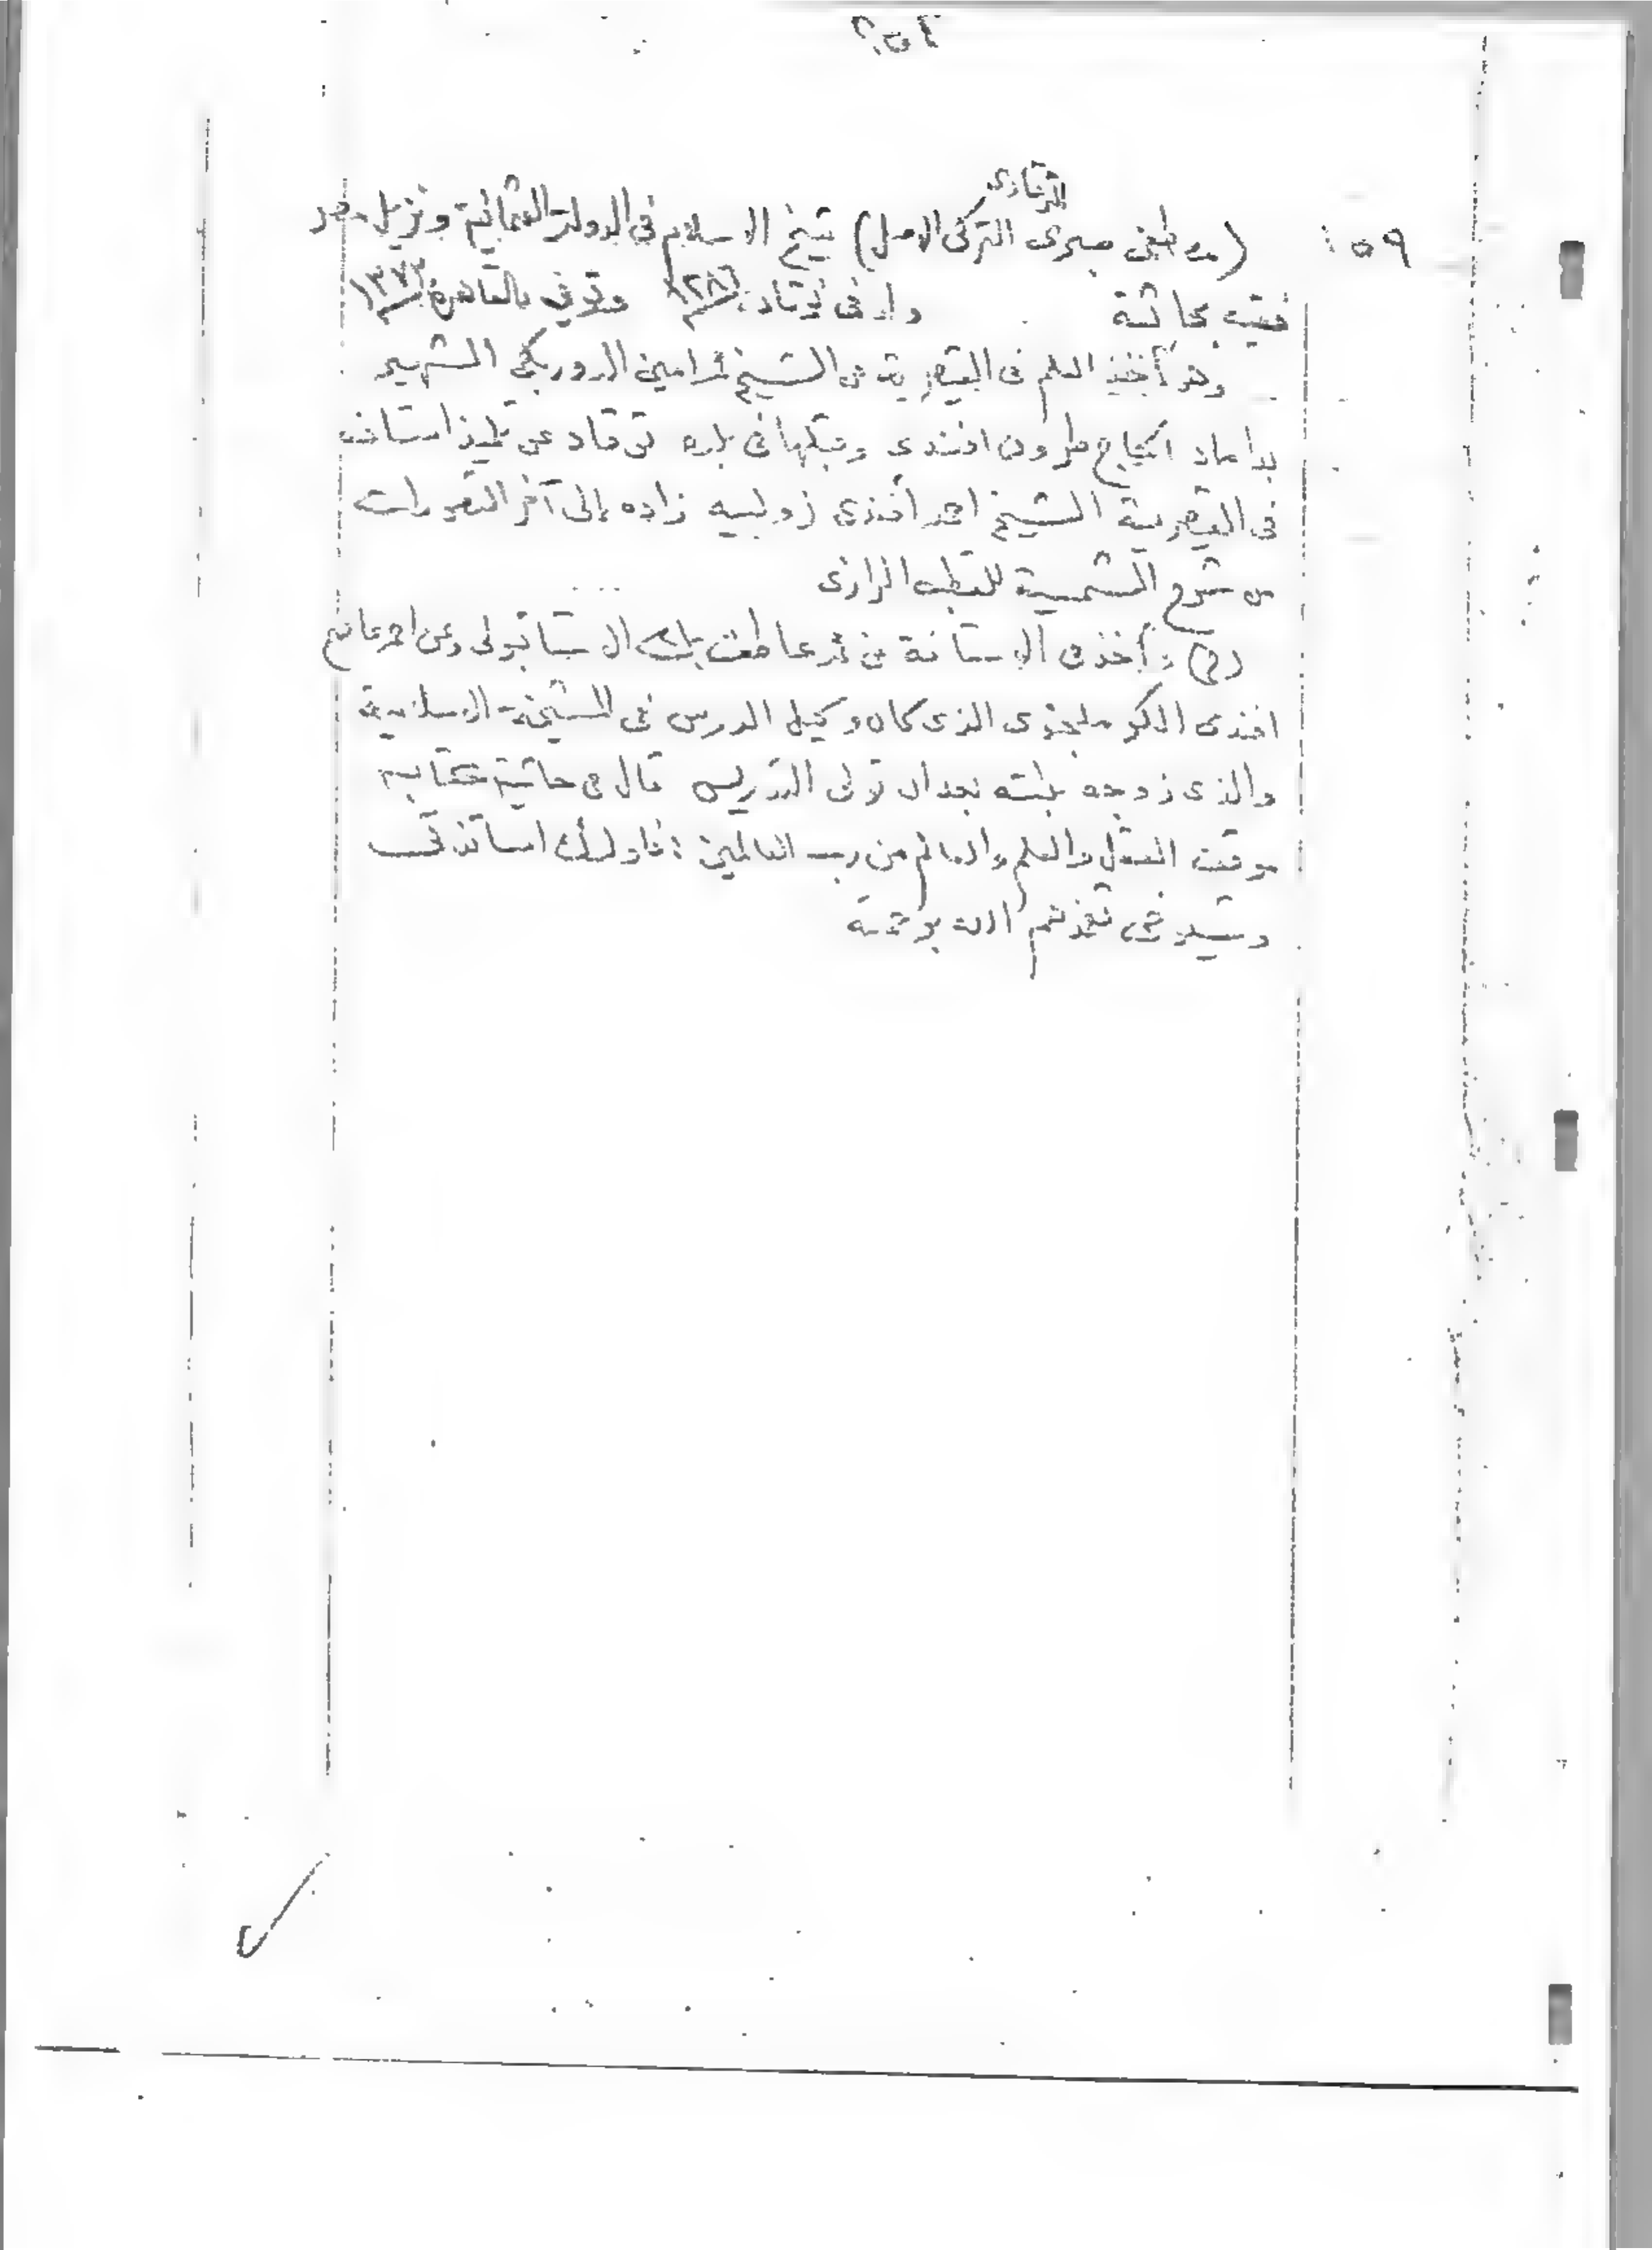 ٤٥٢
التوقادى
٤٥٩ (مصطفى صبرى التركى الاصل) شيخ الاسلام فى الدولة العثمانية ونزيل مصر
فقيه بحاثة ولد فى توقاد ١٢٨٦ وتوفى بالقاهرة ١٣٧٣
وقد أخذ العلم فى القيصرية عن الشيخ محمد امين الدوريكى الشهير
بداماد الحاج طرون افندى وقبلها فى بلده توقاد عن تلميذ استاذه
فى القيصرية الشيخ احمد أفندى زولبيه زاده إلى آخر التصورات
من شرح الشمسية للقطب الرازى
وأخذ فى الاستانة عن محمد عاطف بك الاستانبولى وعن احمد عاصم
افندى الكوملجنوى الذى كان وكيل الدرس فى المشيخة الاسلامية
والذى زوجه بابنته بعد ان تولى التدريس قال فى حاشية كتابه
موقف العقل والعلم والعالم من رب العالمين : فاولئك اساتذتى
وشيوخى تغمدهم الله برحمته